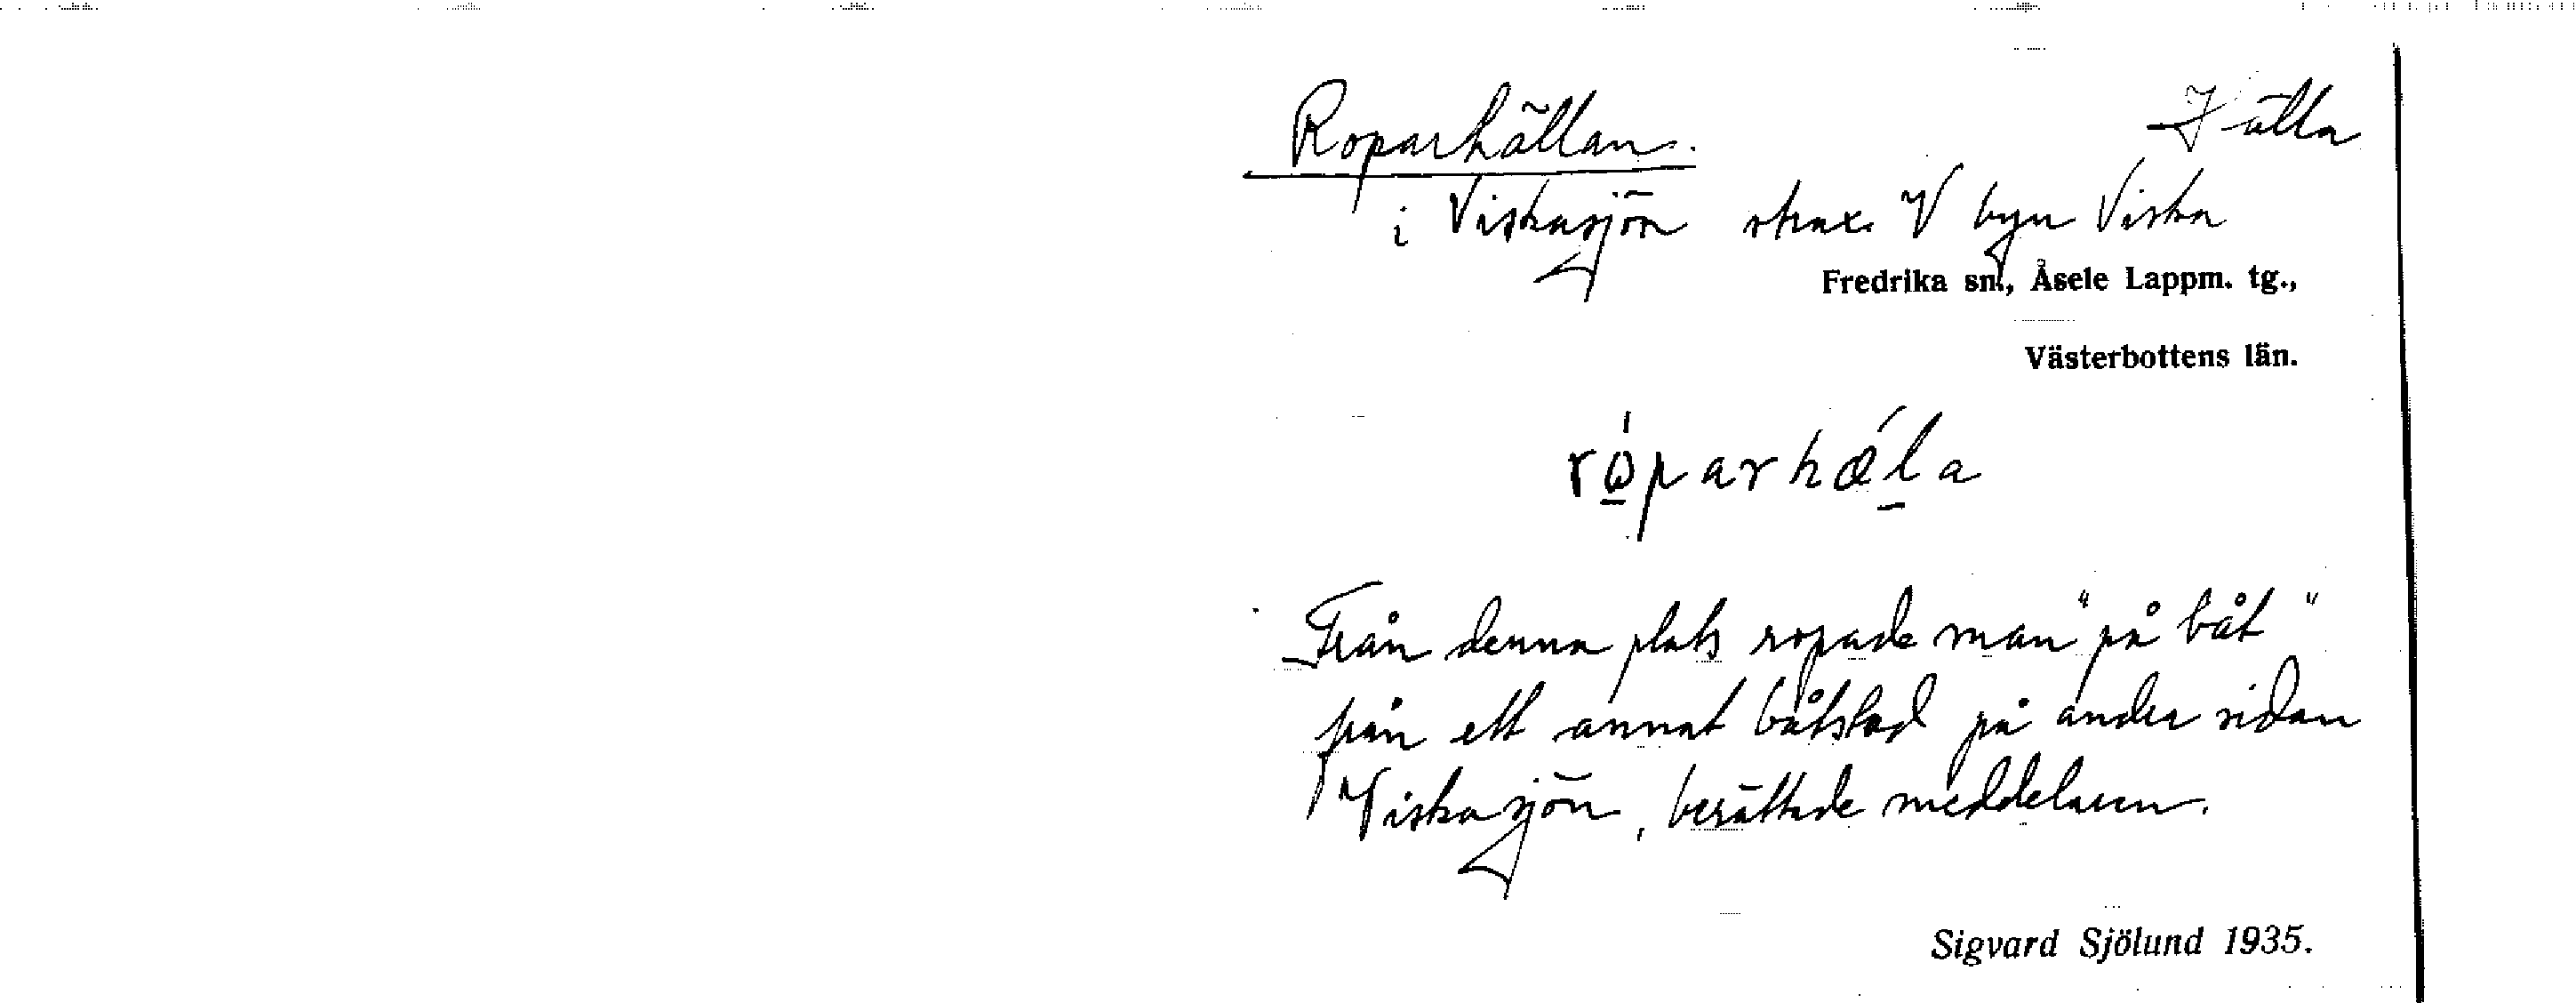 Roparhällan. Hälla
i Viskasjön strax V byn Viska
Fredrika sn, Åsele Lappm. tg.,
Västerbottens län.
rⱷ́parhǽla
Från denna plats ropade man "på båt"
från ett annat båtstad på andra sidan
Viskasjön, berättade meddelaren.
Sigvard Sjölund 1935.